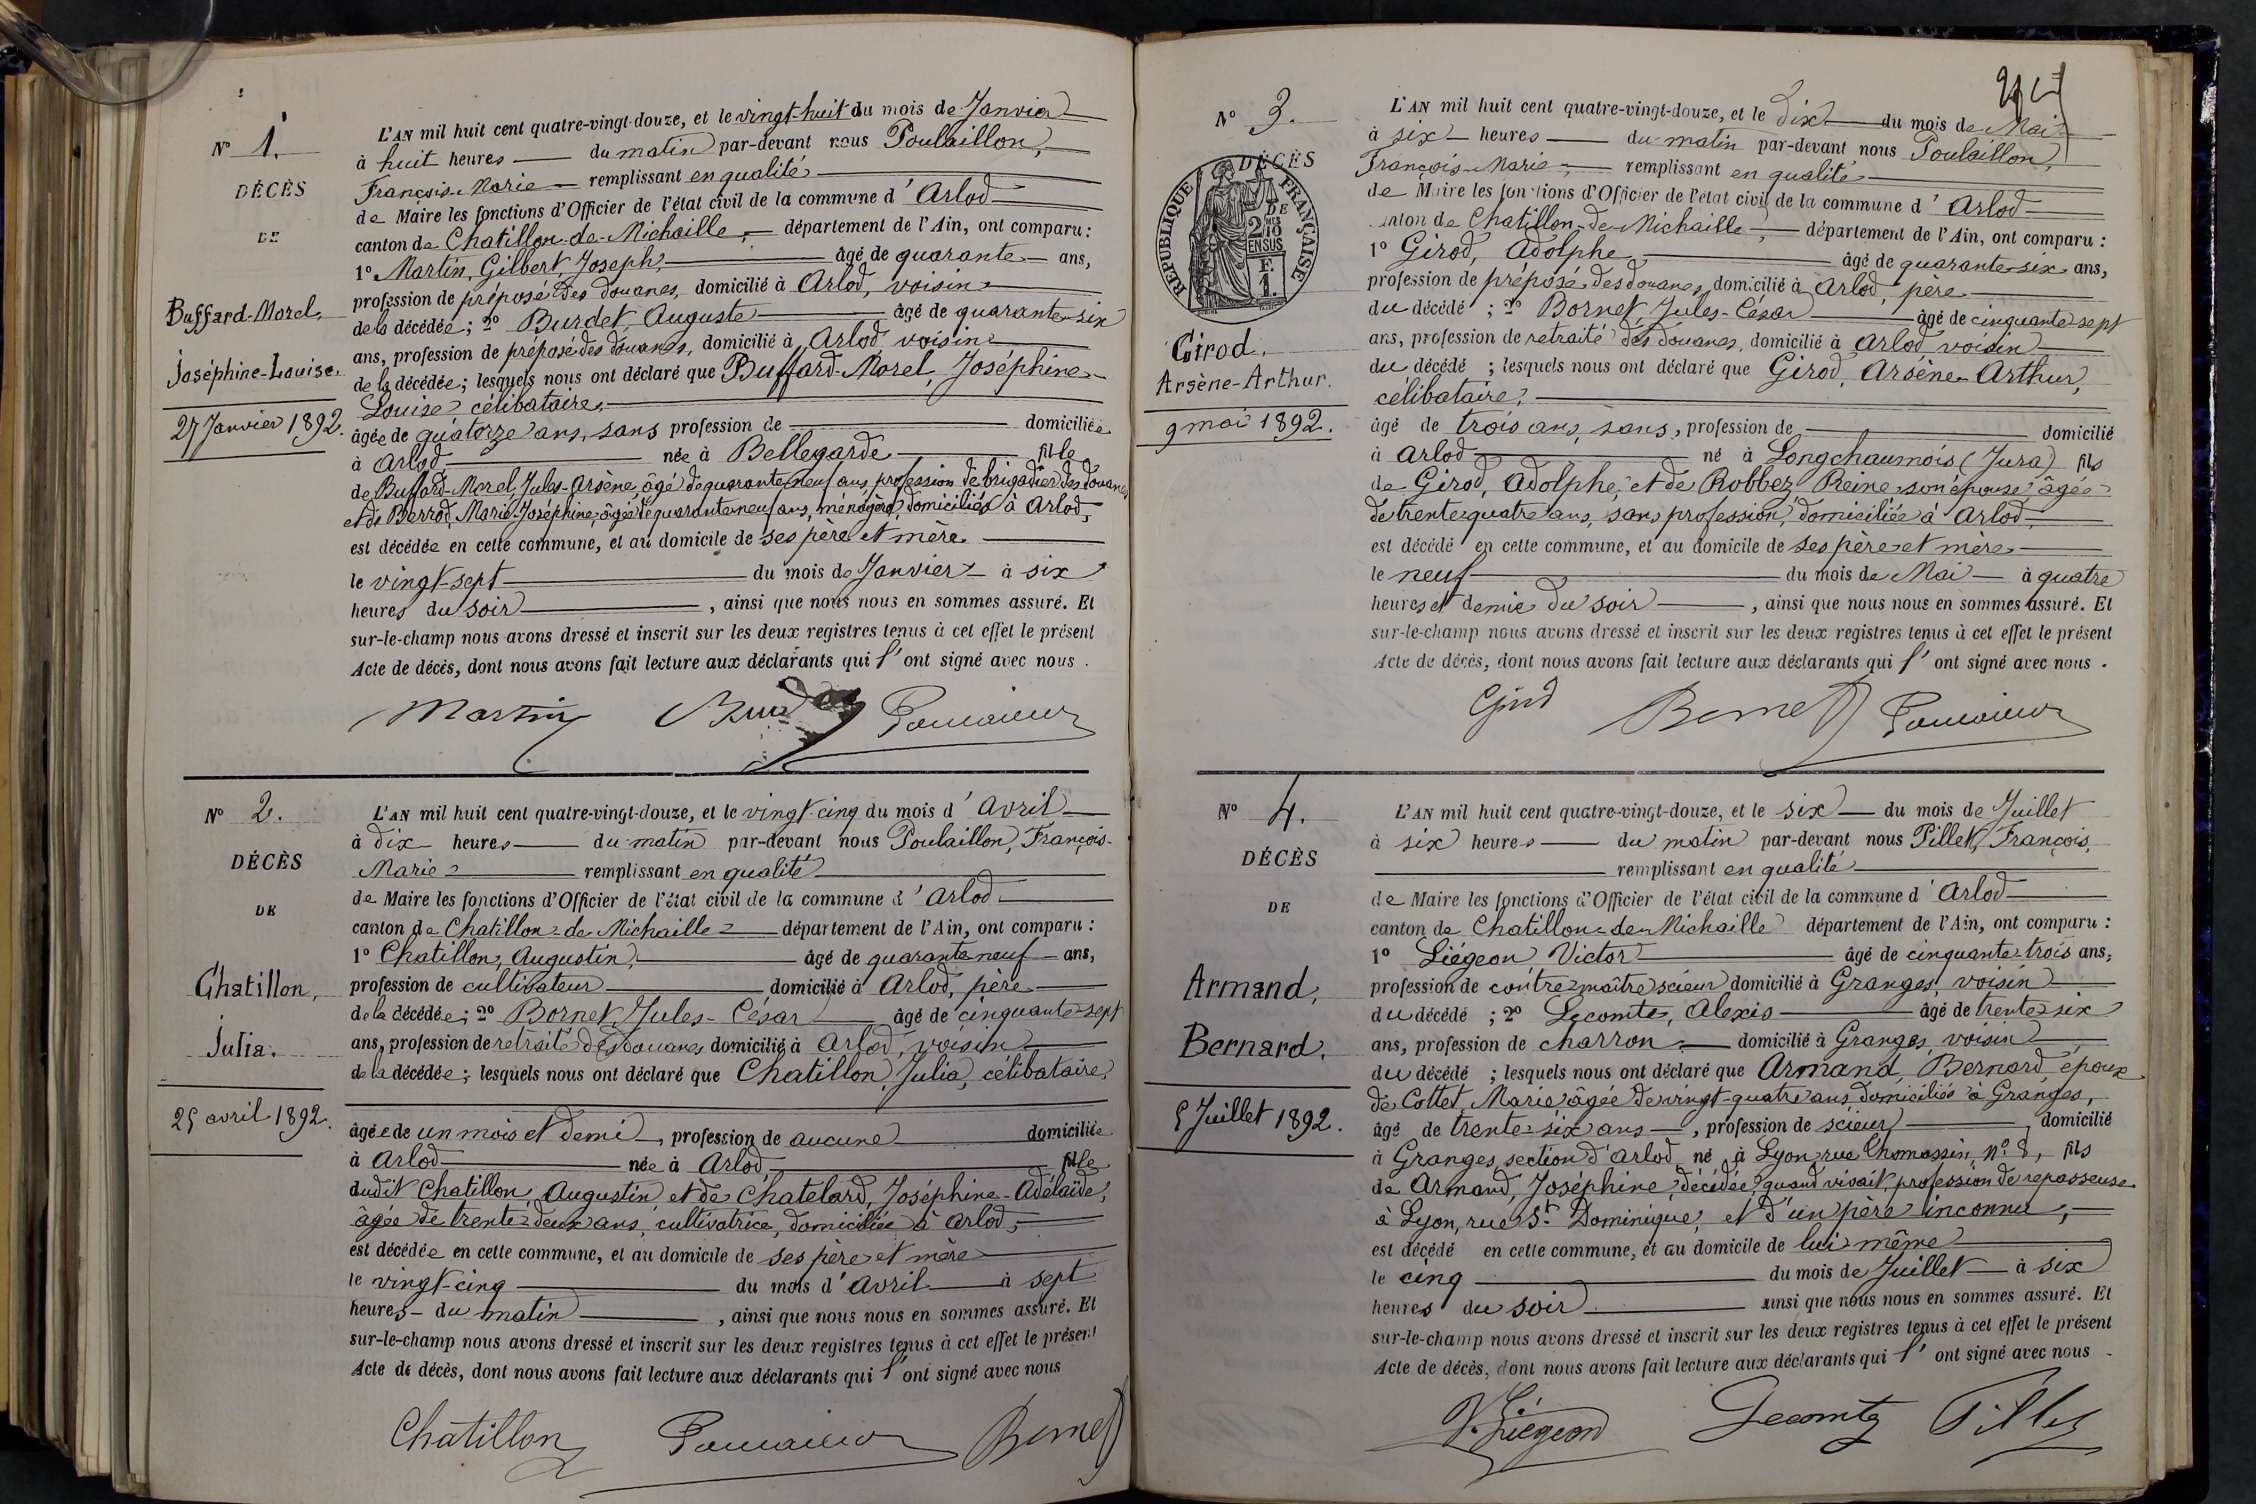 N° 1.
DÉCÈS
DE
Buffard-Morel,
Joséphine-Louise.
27 Janvier 1892.
L'AN mil huit cent quatre-vingt-douze, et le vingt-huit du mois de Janvier
à huit heures du matin par-devant nous Poulaillon,
François-Marie remplissant en qualité
de Maire les fonctions d'Officier de l'état civil de la commune d'Arlod
canton de Chatillon-de-Michaille, département de l'Ain, ont comparu :
1° Martin, Gilbert, Joseph, âgé de quarante ans,
profession de préposé des douanes, domicilié à Arlod, voisin
de la décédée ; 2° Burdet, Auguste âgé de quarante-six
ans, profession de préposé des douanes, domicilié à Arlod voisin
de la décédée ; lesquels nous ont déclaré que Buffard-Morel, Joséphine-
Louise célibataire,
âgée de quatorze ans, sans profession de domiciliée
à Arlod née à Bellegarde fille
de Buffard-Morel, Jules-Arsène, âgé de quarante neuf ans, profession de brigadier des douanes
et de Berrod, Marie-Joséphine, âgée de quarante neuf ans, ménagère, domiciliés à Arlod,
est décédée en cette commune, et au domicile de ses père et mère
le vingt-sept du mois de Janvier à six
heures du soir, ainsi que nous nous en sommes assuré. Et
sur-le-champ nous avons dressé et inscrit sur les deux registres tenus à cet effet le présent
Acte de décès, dont nous avons fait lecture aux déclarants qui l'ont signé avec nous.
Martin Burdet Poulaillon
N° 2.
DÉCÈS
DE
Chatillon,
Julia.
25 avril 1892.
L'AN mil huit cent quatre-vingt-douze, et le vingt-cinq du mois d'Avril
à dix heures du matin par-devant nous Poulaillon, François-
Marie remplissant en qualité
de Maire les fonctions d'Officier de l'état civil de la commune d'Arlod
canton de Chatillon-de-Michaille département de l'Ain, ont comparu :
1° Chatillon, Augustin, âgé de quarante neuf ans,
profession de cultivateur domicilié à Arlod, père
de la décédée ; 2° Bornet, Jules-César âgé de cinquante-sept
ans, profession de retraité des douanes domicilié à Arlod, voisin
de la décédée ; lesquels nous ont déclaré que Chatillon, Julia, célibataire,
âgée de un mois et demi, profession de aucune domiciliée
à Arlod née à Arlod fille
dudit Chatillon, Augustin et de Chatelard, Joséphine-Adélaïde,
âgée de trente-deux ans, cultivatrice, domiciliée à Arlod,
est décédée en cette commune, et au domicile de ses père et mère
le vingt-cinq du mois d'avril à sept
heures du matin, ainsi que nous nous en sommes assuré. Et
sur-le-champ nous avons dressé et inscrit sur les deux registres tenus à cet effet le présent
Acte de décès, dont nous avons fait lecture aux déclarants qui l'ont signé avec nous
Chatillon Poulaillon Bornet
N° 3.
DÉCÈS
DE
RÉPUBLIQUE FRANÇAISE
2/10 EN SUS
F.
1.
Girod,
Arsène-Arthur.
9 mai 1892.
L'AN mil huit cent quatre-vingt-douze, et le dix du mois de Mai
à six heures du matin par-devant nous Poulaillon,
François-Marie, remplissant en qualité
de Maire les fonctions d'Officier de l'état civil de la commune d'Arlod
canton de Chatillon-de-Michaille, département de l'Ain, ont comparu :
1° Girod, Adolphe, âgé de quarante-six ans,
profession de préposé des douanes, domicilié à Arlod, père
du décédé ; 2° Bornet, Jules-César âgé de cinquante sept
ans, profession de retraité des douanes, domicilié à Arlod voisin
du décédé ; lesquels nous ont déclaré que Girod, Arsène-Arthur,
célibataire,
âgé de trois ans, sans, profession de domicilié
à Arlod né à Longchaumois (Jura) fils
de Girod, Adolphe, et de Robbez Reine son épouse, âgée
de trente quatre ans, sans profession, domiciliée à Arlod,
est décédé en cette commune, et au domicile de ses père et mère
le neuf du mois de Mai à quatre
heures et demie du soir, ainsi que nous nous en sommes assuré. Et
sur-le-champ nous avons dressé et inscrit sur les deux registres tenus à cet effet le présent
Acte de décès, dont nous avons fait lecture aux déclarants qui l'ont signé avec nous.
Girod Bornet Poulaillon
N° 4.
DÉCÈS
DE
Armand,
Bernard.
5 Juillet 1892.
L'AN mil huit cent quatre-vingt-douze, et le six du mois de Juillet
à six heures du matin par-devant nous Pillet, François,
remplissant en qualité
de Maire les fonctions d'Officier de l'état civil de la commune d'Arlod
canton de Chatillon-de-Michaille département de l'Ain, ont comparu :
1° Liégeon Victor âgé de cinquante-trois ans,
profession de contre-maître scieur domicilié à Granges, voisin
du décédé ; 2° Lecomte, Alexis âgé de trente-six
ans, profession de charron, domicilié à Granges voisin
du décédé ; lesquels nous ont déclaré que Armand, Bernard époux
de Cottet Marie âgée de vingt-quatre ans domiciliés à Granges,
âgé de trente-six ans, profession de scieur, domicilié
à Granges, section d'Arlod né à Lyon rue Thomassin, n° 8, fils
de Armand, Joséphine, décédée, quand vivait, profession de repasseuse
à Lyon, rue St Dominique, et d'un père inconnu,
est décédé en cette commune, et au domicile de lui-même
le cinq du mois de Juillet à six
heures du soir ainsi que nous nous en sommes assuré. Et
sur-le-champ nous avons dressé et inscrit sur les deux registres tenus à cet effet le présent
Acte de décès, dont nous avons fait lecture aux déclarants qui l'ont signé avec nous
V. Liégeon Lecomte Pillet